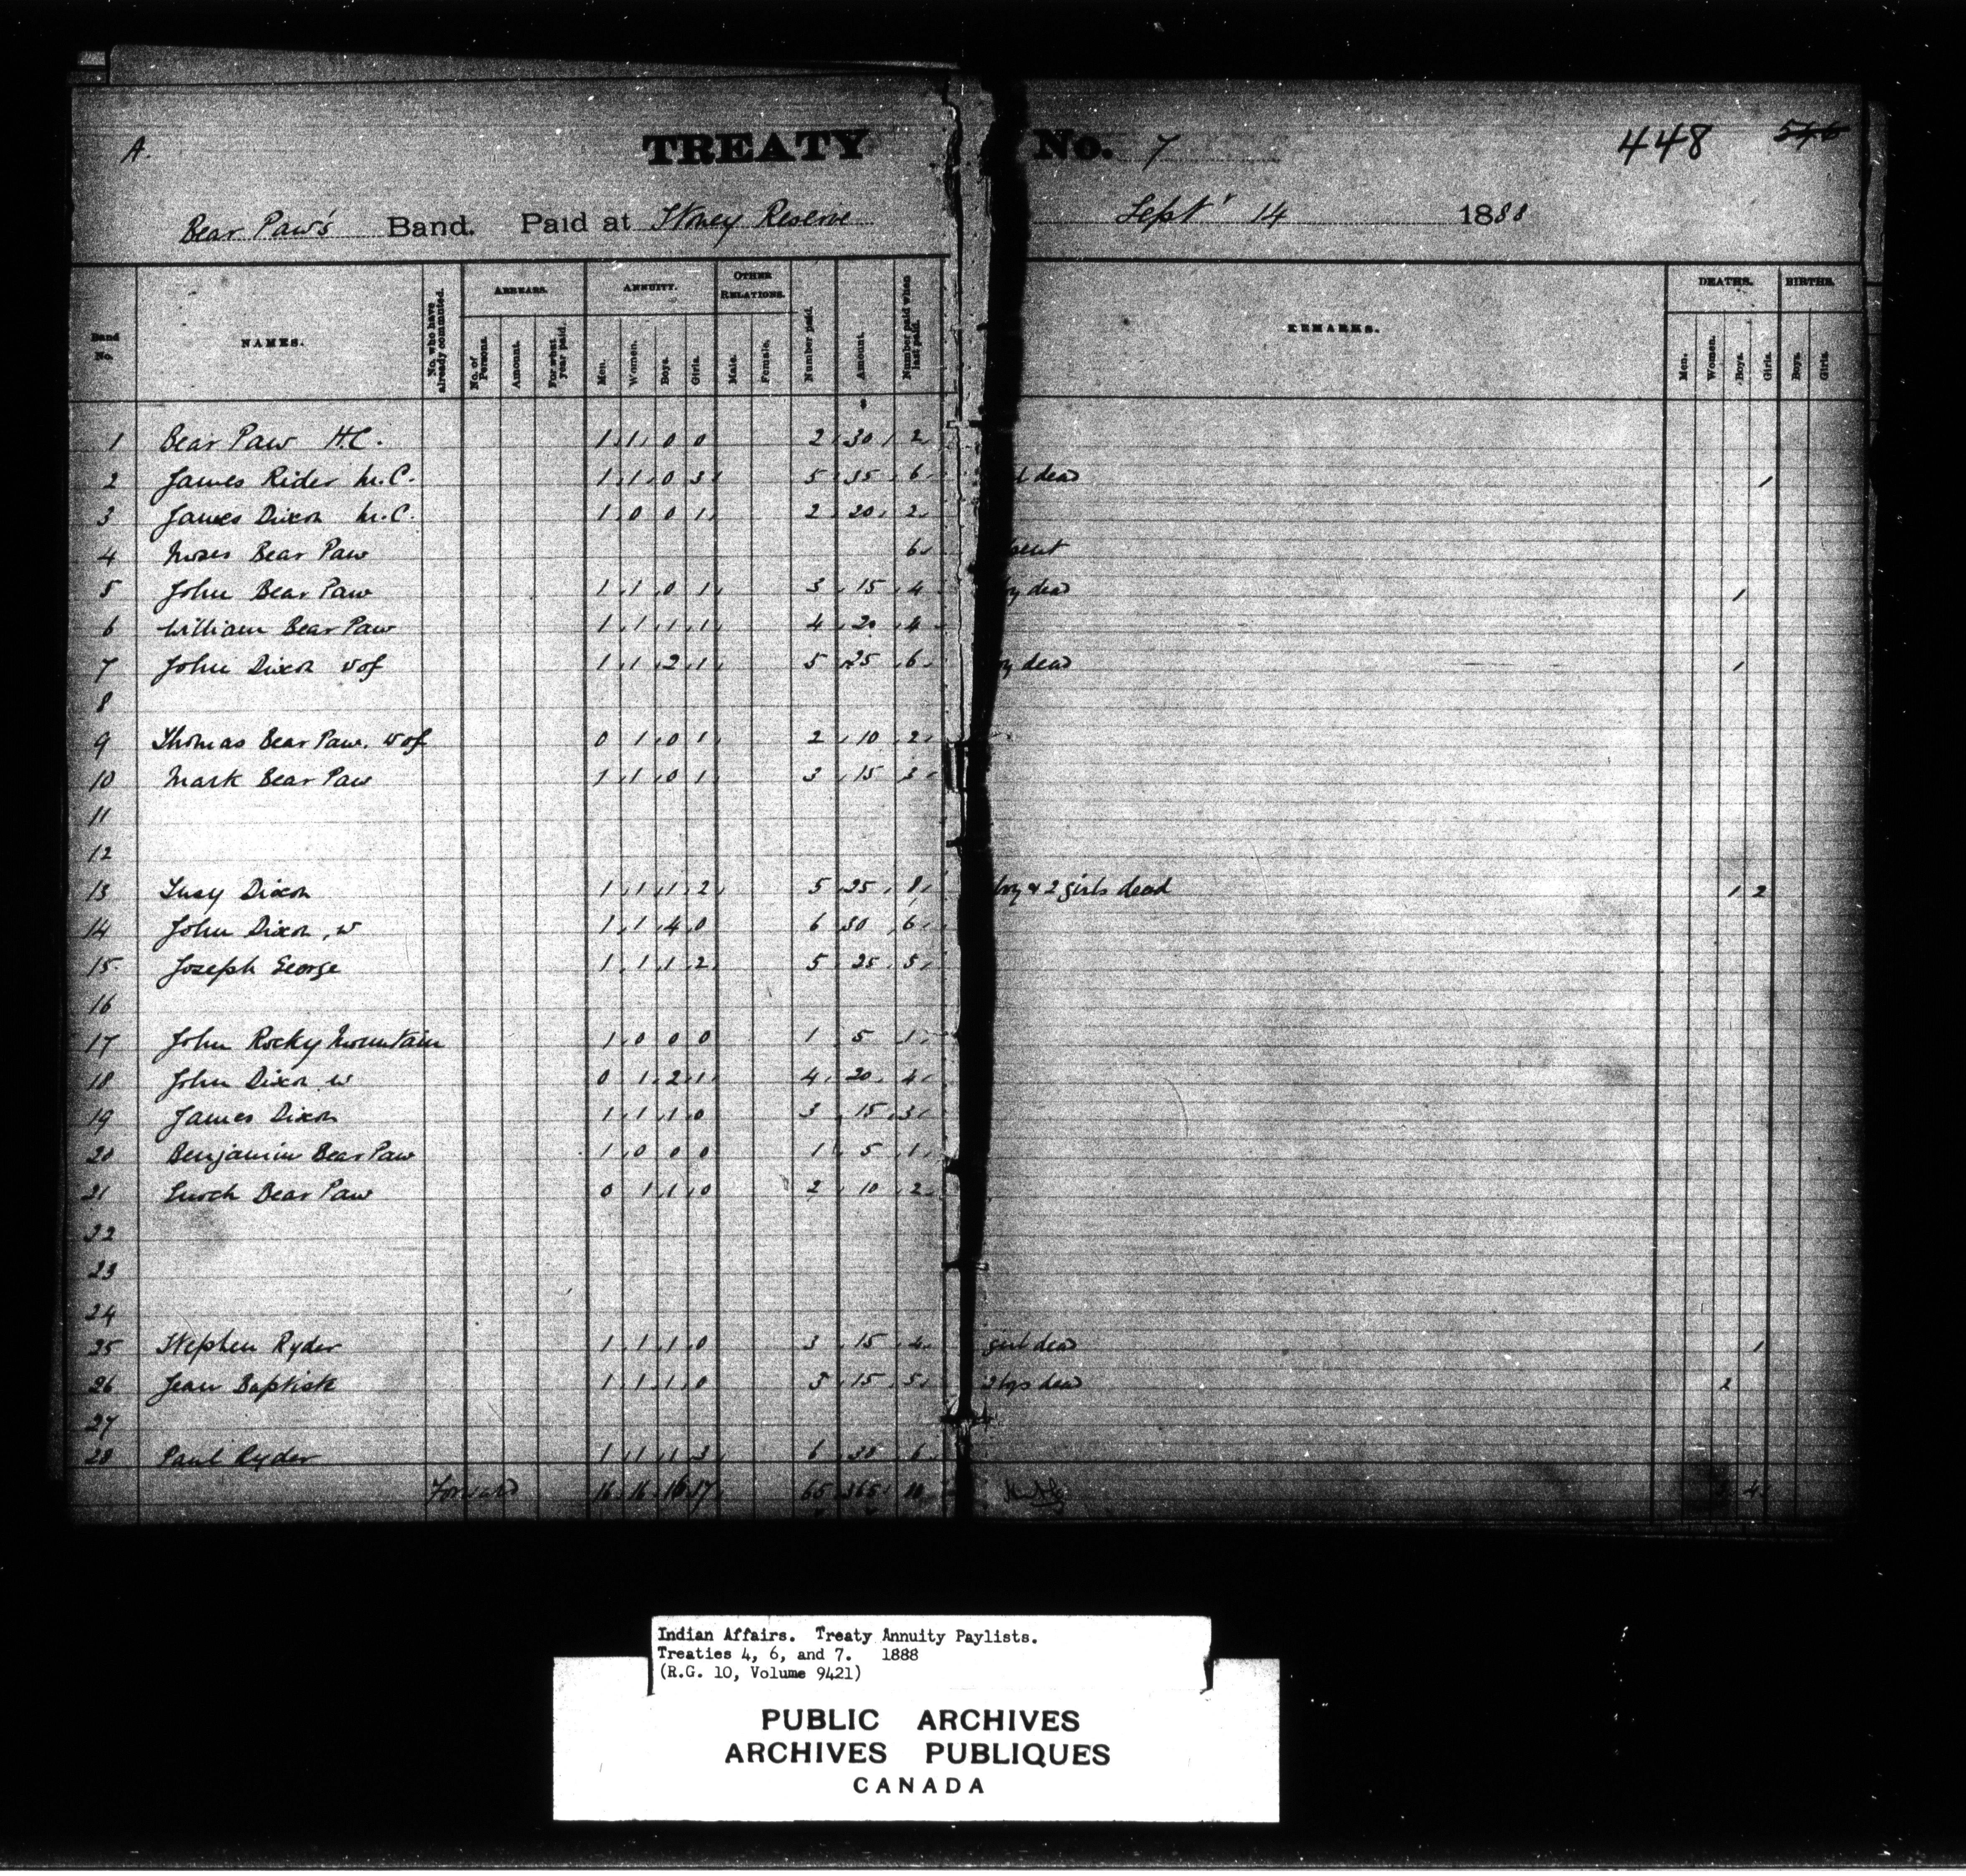 A.
TREATY No. 7
448 546
Bear Paw's Band. Paid at Stoney Reserve Sept' 14 1888
Band No. NAMES. No. who have already commuted. ARREARS. No. of Persons. Amount. For what year paid. ANNUITY. Men. Women. Boys. Girls. OTHER RELATIONS. Male. Female. Number paid. Amount. Number paid when last paid. REMARKS. DEATHS. Men. Women. Boys. Girls. BIRTHS. Boys. Girls.
$
1 Bear Paw H.C. 1 1 0 0 2 30 2
2 James Rider M.C. 1 1 0 3 5 35 6 dead 1
3 James Dixon M.C. 1 0 0 1 2 20 2
4 Moses Bear Paw 6
5 John Bear Paw 1 1 0 1 3 15 4 dead 1
6 William Bear Paw 1 1 1 1 4 20 4
7 John Dixon 1 1 2 1 5 25 6 dead 1
8
9 Thomas Bear Paw. 0 1 0 1 2 10 2
10 Mark Bear Paw 1 1 0 1 3 15 3
11
12
13 Dixon 1 1 1 2 5 25 8 boy & 2 girls dead 1 2
14 John Dixon, w 1 1 4 0 6 30 6
15 Joseph George 1 1 1 2 5 25 5
16
17 John Rocky Mountain 1 0 0 0 1 5 1
18 John Dixon w 0 1 2 1 4 20 4
19 James Dixon 1 1 1 0 3 15 3
20 Benjamin Bear Paw 1 0 0 0 1 5 1
21 Bear Paw 0 1 1 0 2 10 2
22
23
24
25 Stephen Ryder 1 1 1 0 3 15 4 girl dead 1
26 Jean Baptiste 1 1 1 0 3 15 5 2 boys dead 2
27
28 Paul Ryder 1 1 1 3 6 30 6
Forward 16 16 16 17 65 365 4
Indian Affairs. Treaty Annuity Paylists.
Treaties 4, 6, and 7. 1888
(R.G. 10, Volume 9421)
PUBLIC ARCHIVES
ARCHIVES PUBLIQUES
CANADA